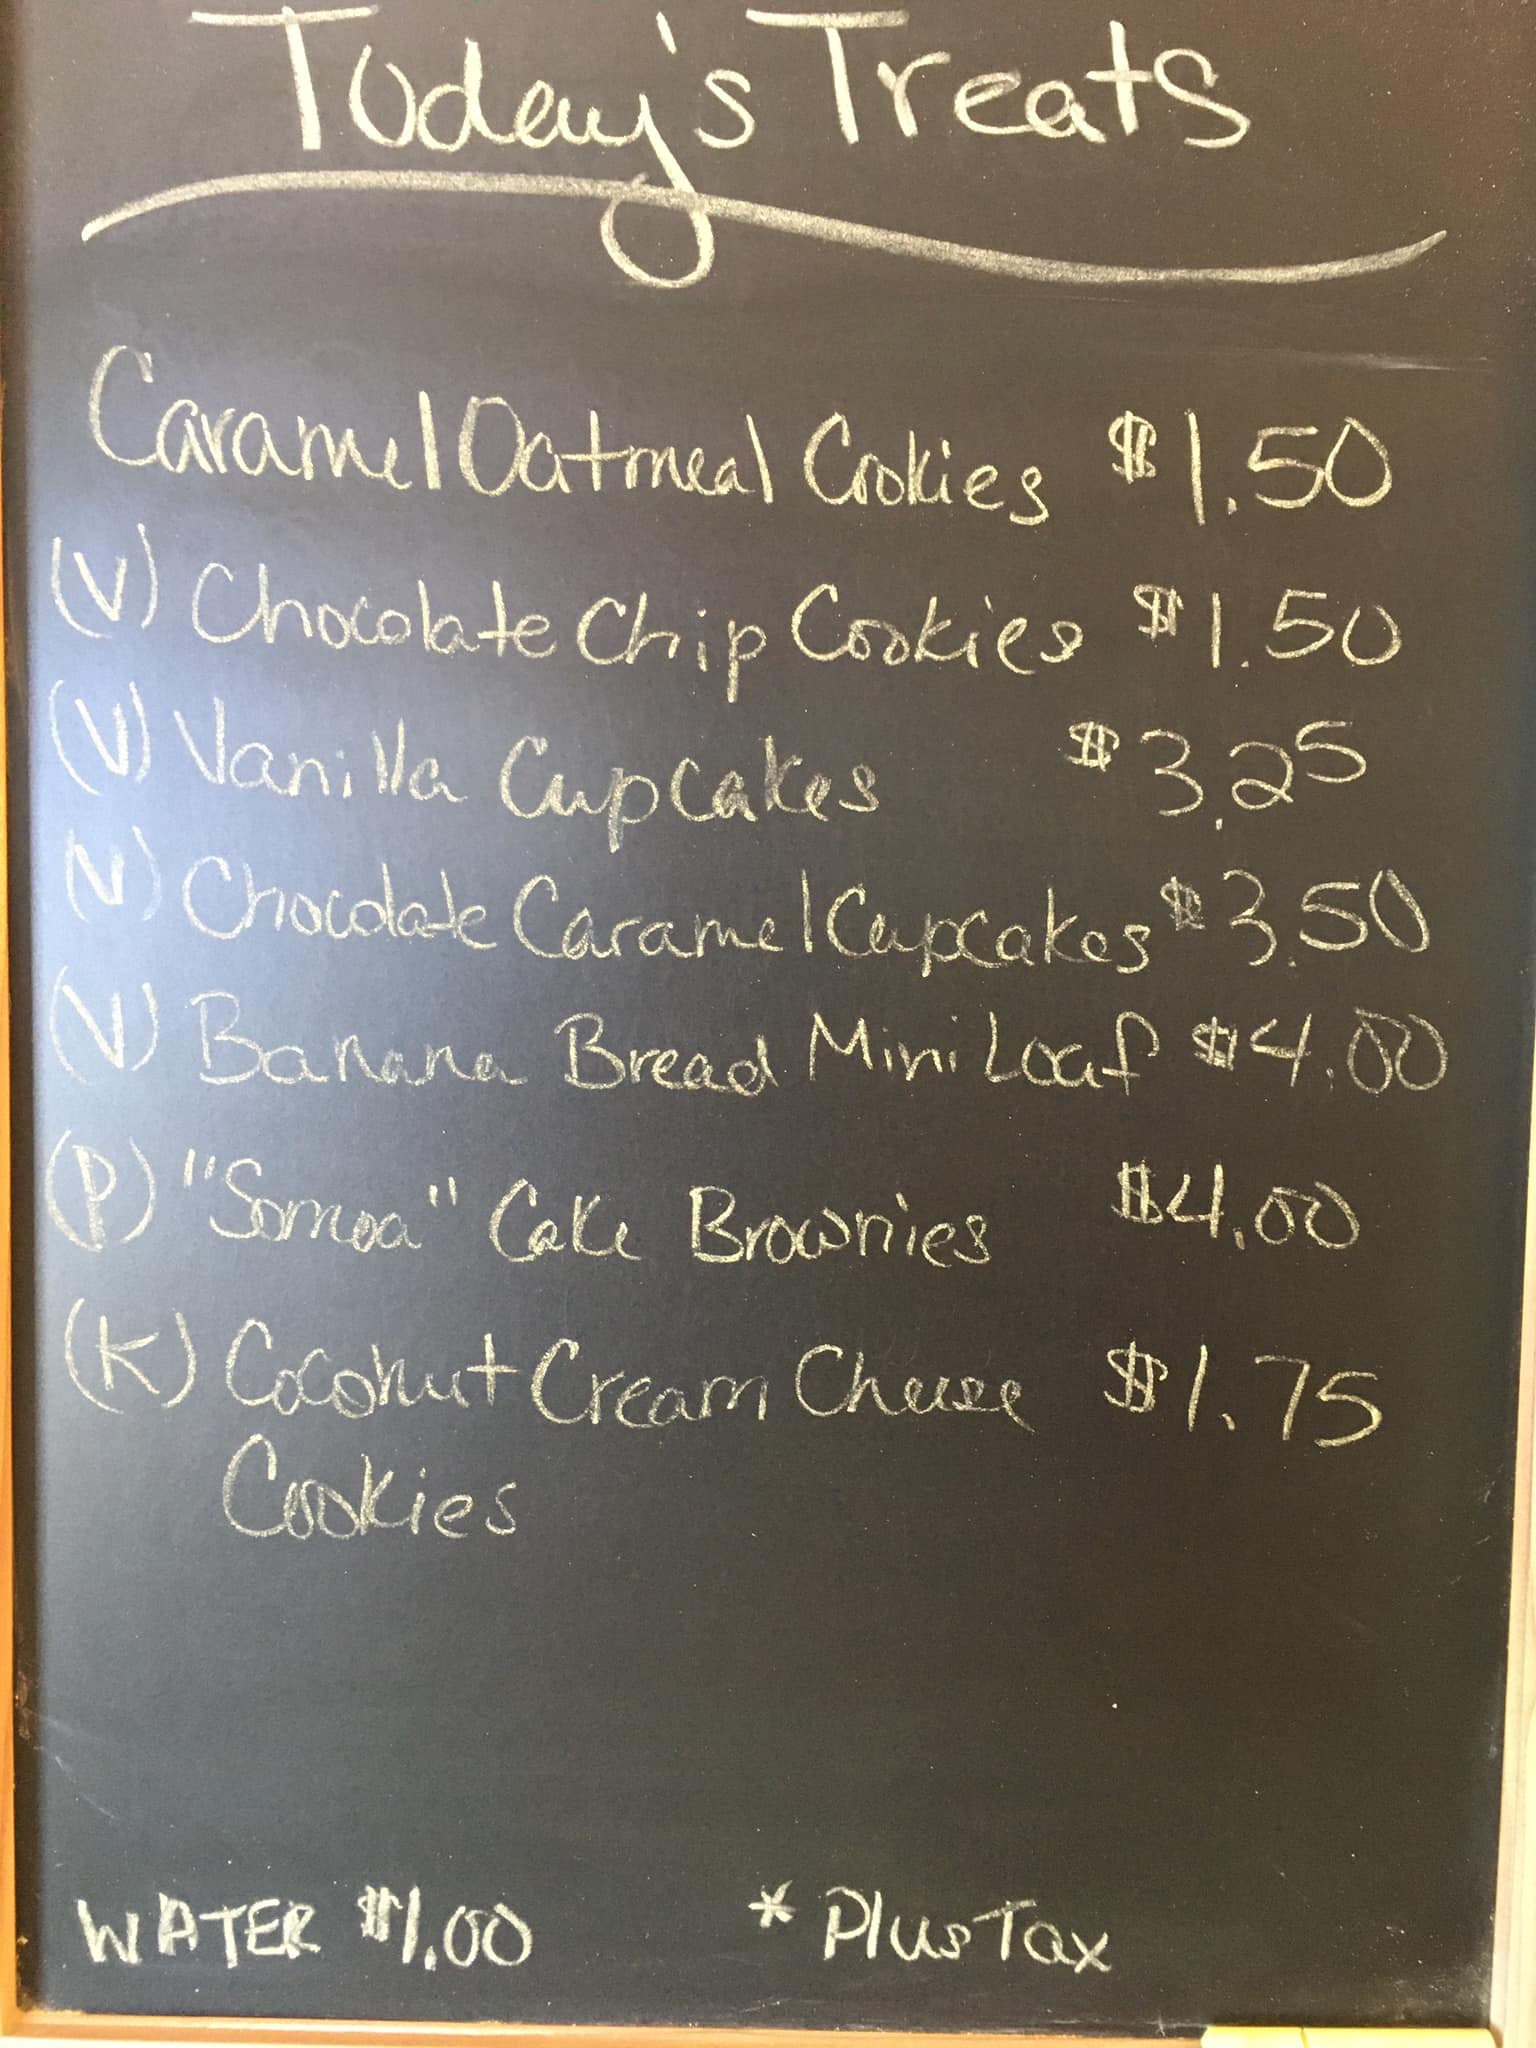 Today's Treats
Caramel Oatmeal Cookies $1.50
(V) Chocolate Chip Cookies $1.50
(V) Vanilla Cupcakes $3.25
(V) Chocolate Caramel Cupcakes $3.50
(V) Banana Bread Mini Loaf $4.00
(P) "Somoa" Cake Brownies $4.00
(K) Coconut Cream Cheese $1.75
Cookies
WATER $1.00 * Plus Tax